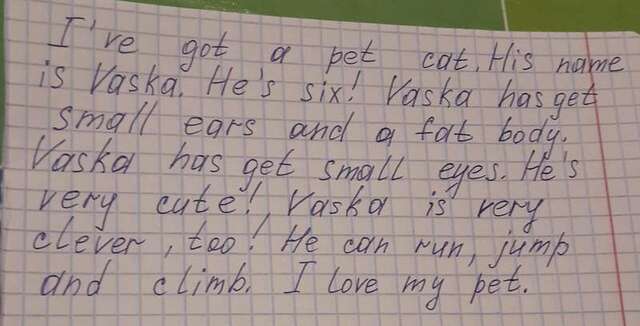 I've got a pet cat. His name
is Vaska. He's six! Vaska has get
small ears and a fat body.
Vaska has get small eyes. He's
very cute! Vaska is very
clever, too! He can run, jump
and climb. I love my pet.